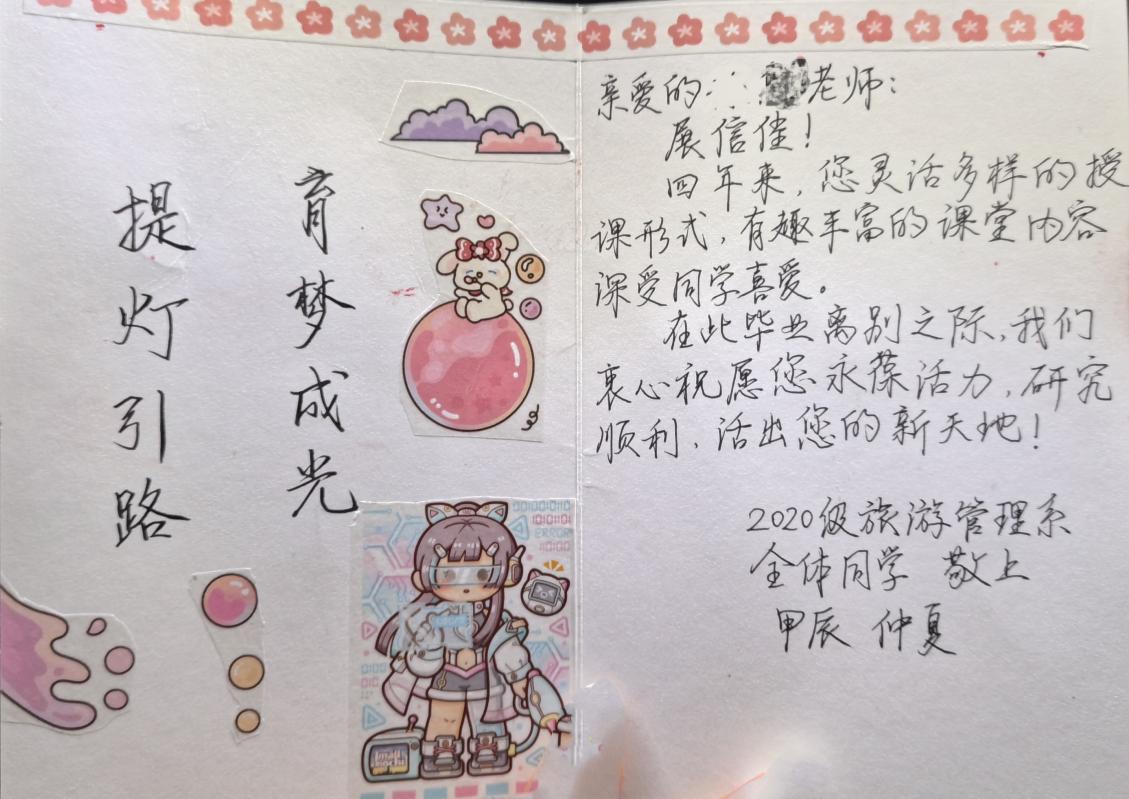 育梦成光
提灯引路
亲爱的 老师：
展信佳！
四年来，您灵活多样的授
课形式，有趣丰富的课堂内容
深受同学喜爱。
在此毕业离别之际，我们
衷心祝愿您永葆活力，研究
顺利，活出您的新天地！
2020级旅游管理系
全体同学 敬上
甲辰 仲夏
ERROR